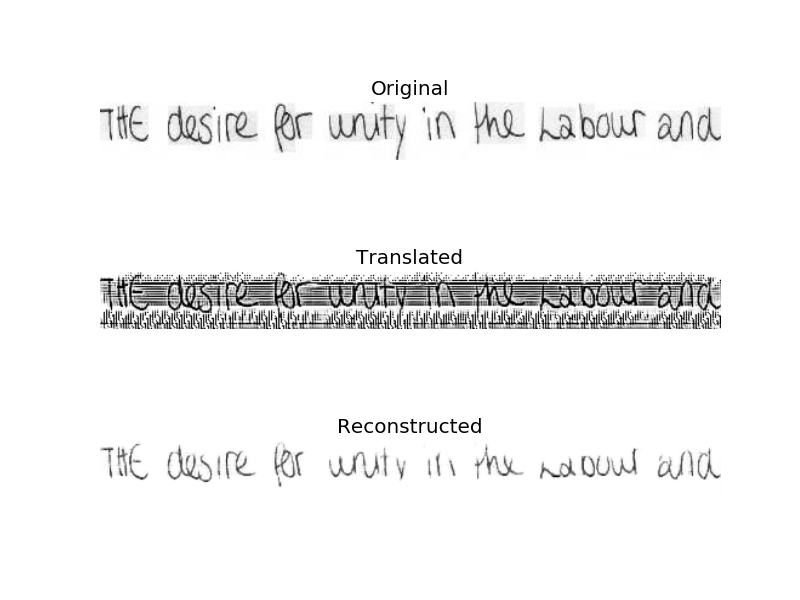 Original
THE desire for unity in the Labour and
Translated
THE desire for unity in the Labour and
Reconstructed
THE desire for unity in the Labour and